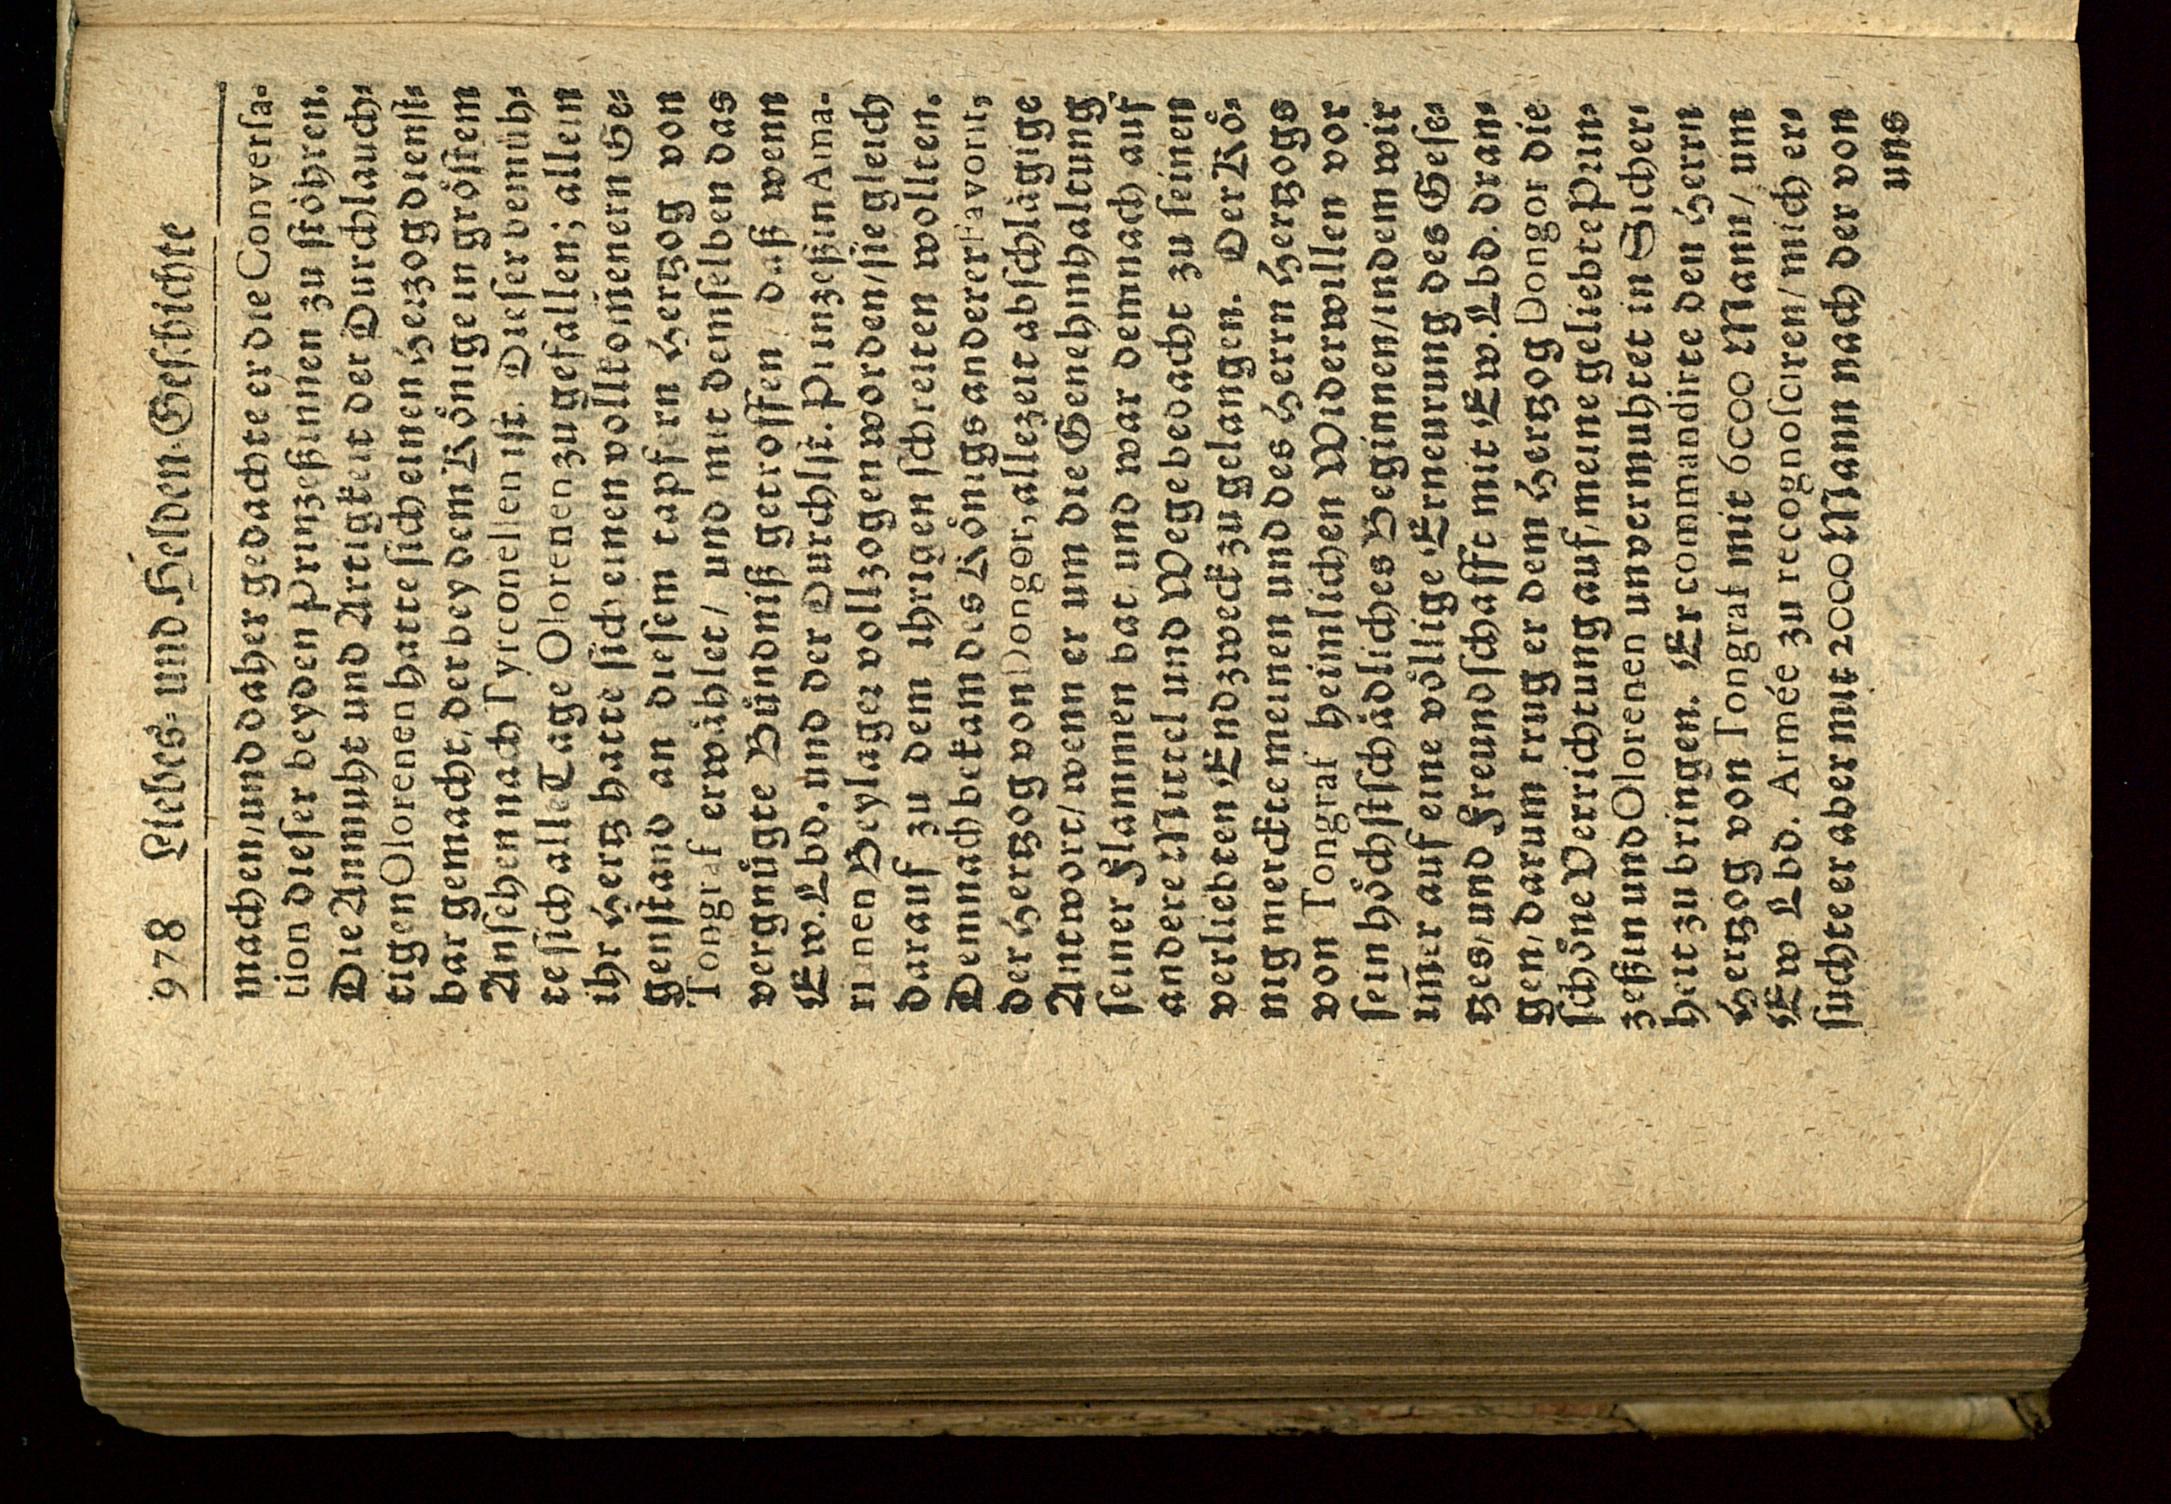 978 Liebes- und Helden-Geschichte
machen/und daher gedachte er die Conversa-
tion dieser beyden Prinzeßinnen zu stöhren.
Die Anmuht und Artigkeit der Durchlauch-
tigen Olorenen hatte sich einen Herzog dienst-
bar gemacht, der bey dem Könige in gröstem
Ansehen nach Tyrconellen ist. Dieser bemüh-
te sich alle Tage Olorenen zu gefallen; allein
ihr Hertz hatte sich einen vollkom̃enern Ge-
genstand an diesem tapfern Hertzog von
Tongraf erwählet/ und mit demselben das
vergnügte Bündniß getroffen/ daß wenn
Ew. Lbd. und der Durchlst. Prinzeßin Ama-
rinen Beylager vollzogen worden/sie gleich
darauf zu dem ihrigen schreiten wollten.
Demnach bekam des Königs anderer Favorit,
der Hertzog von Dongor, allezeit abschlägige
Antwort/wenn er um die Genehmhaltung
seiner Flammen bat, und war demnach auf
andere Mittel und Wege bedacht zu seinen
verliebten Endzweck zu gelangen. Der Kö-
nig merckte meinen und des Herrn Hertzogs
von Tongraf heimlichen Widerwillen vor
sein höchstschädliches Beginnen/indem wir
im̃er auf eine völlige Erneurung des Gese-
tzes, und Freundschafft mit Ew. Lbd. dran-
gen, darum trug er dem Hertzog Dongor die
schöne Verrichtung auf, meine geliebte Prin-
zeßin und Olorenen unvermuhtet in Sicher-
heit zu bringen. Er commandirte den Herrn
Hertzog von Tongraf mit 6000 Mann/ um
Ew Lbd. Armée zu recognosciren/mich er-
suchte er aber mit 2000 Mann nach der von
uns